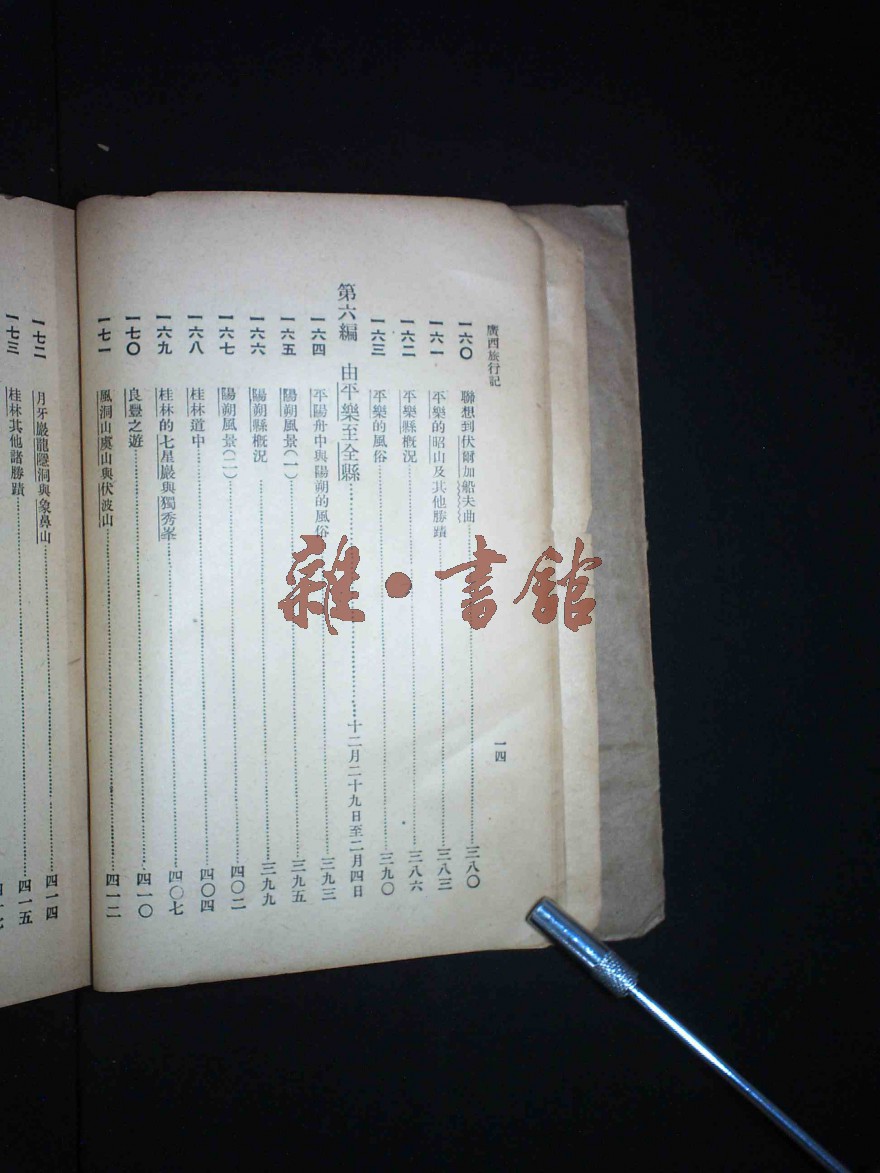 廣西旅行記
一四
一六〇 聯想到伏爾加船夫曲 三八〇
一六一 平樂的昭山及其他勝蹟 三八三
一六二 平樂縣概況 三八六
一六三 平樂的風俗 三九〇
第六編 由平樂至全縣 十二月二十九日至二月四日
一六四 平陽舟中與陽朔的風俗 三九三
一六五 陽朔風景(一) 三九五
一六六 陽朔縣概況 三九九
一六七 陽朔風景(二) 四〇二
一六八 桂林道中 四〇四
一六九 桂林的七星巖與獨秀峯 四〇七
一七〇 良豐之遊 四一〇
一七一 風洞山虞山與伏波山 四一二
一七二 月牙巖龍隱洞與象鼻山 四一四
一七三 桂林其他諸勝蹟 四一五
雜·書館